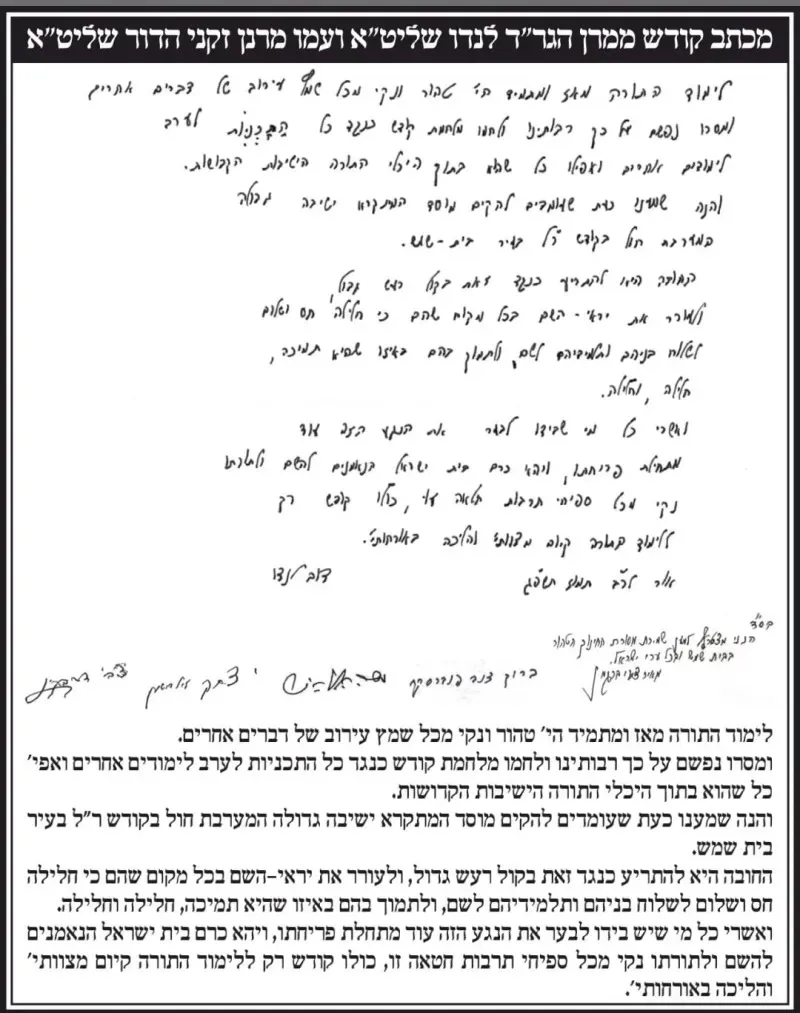 מכתב קודש ממרן הגר"ד לנדו שליט"א ועמו מרנן זקני הדור שליט"א
לימוד התורה מאז ומתמיד הי' טהור ונקי מכל שמץ עירוב של דברים אחרים
ומסרו נפשם על כך רבותינו ולחמו מלחמת קודש כנגד כל התכניות לערב
לימודים אחרים ואפילו כל שהוא בתוך היכלי התורה הישיבות הקדושות.
והנה שמענו כעת שעומדים להקים מוסד המתקרא ישיבה גדולה
המערבת חול בקודש ר"ל בעיר בית-שמש.
החובה היא להתריע כנגד זאת בקול רעש גדול,
ולעורר את יראי-השם בכל מקום שהם כי חלילה חס ושלום
לשלוח בניהם ותלמידיהם לשם, ולתמוך בהם באיזו שהיא תמיכה,
חלילה, וחלילה.
ואשרי כל מי שבידו לבער את הנגע הזה עוד
מתחלת פריחתו, ויהא כרם בית ישראל הנאמנים להשם ולתורתו
נקי מכל ספיחי תרבות חטאה זו, כולו קודש רק
ללימוד התורה קיום מצוותי' והליכה באורחותי'.
אור לי"ב תמוז תשפ"ג
דוב לנדו
בס"ד
הנני מצטרף למען שמירת מסורת החינוך הטהור
בבית שמש ובכל ערי ישראל.
מאיר צבי ברגמן
ברוך דוב פוברסקי
לימוד התורה מאז ומתמיד הי' טהור ונקי מכל שמץ עירוב של דברים אחרים.
ומסרו נפשם על כך רבותינו ולחמו מלחמת קודש כנגד כל התכניות לערב לימודים אחרים ואפי'
כל שהוא בתוך היכלי התורה הישיבות הקדושות.
והנה שמענו כעת שעומדים להקים מוסד המתקרא ישיבה גדולה המערבת חול בקודש ר"ל בעיר
בית שמש.
החובה היא להתריע כנגד זאת בקול רעש גדול, ולעורר את יראי-השם בכל מקום שהם כי חלילה
חס ושלום לשלוח בניהם ותלמידיהם לשם, ולתמוך בהם באיזו שהיא תמיכה, חלילה וחלילה.
ואשרי כל מי שיש בידו לבער את הנגע הזה עוד מתחלת פריחתו, ויהא כרם בית ישראל הנאמנים
להשם ולתורתו נקי מכל ספיחי תרבות חטאה זו, כולו קודש רק ללימוד התורה קיום מצוותי'
והליכה באורחותי'.